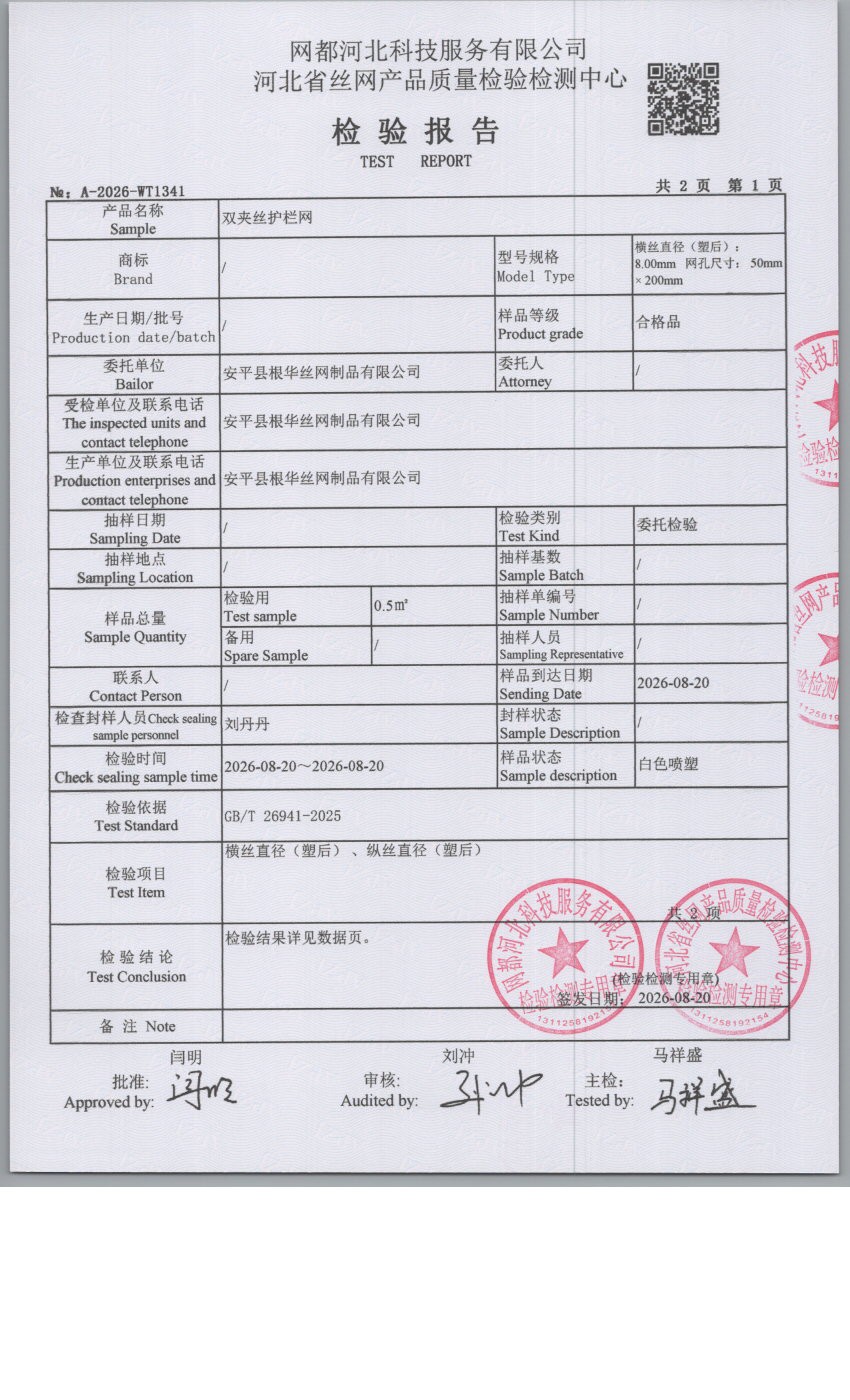 网都河北科技服务有限公司
河北省丝网产品质量检验检测中心
检验报告
TEST REPORT
№: A-2026-WT1341
共 2 页 第 1 页
产品名称
Sample
双夹丝护栏网
商标
Brand
/
型号规格
Model Type
横丝直径（塑后）：
8.00mm 网孔尺寸： 50mm
× 200mm
生产日期/批号
Production date/batch
/
样品等级
Product grade
合格品
委托单位
Bailor
安平县根华丝网制品有限公司
委托人
Attorney
/
受检单位及联系电话
The inspected units and
contact telephone
安平县根华丝网制品有限公司
生产单位及联系电话
Production enterprises and
contact telephone
安平县根华丝网制品有限公司
抽样日期
Sampling Date
/
检验类别
Test Kind
委托检验
抽样地点
Sampling Location
/
抽样基数
Sample Batch
/
样品总量
Sample Quantity
检验用
Test sample
0.5㎡
抽样单编号
Sample Number
/
备用
Spare Sample
/
抽样人员
Sampling Representative
/
联系人
Contact Person
/
样品到达日期
Sending Date
2026-08-20
检查封样人员Check sealing
sample personnel
刘丹丹
封样状态
Sample Description
/
检验时间
Check sealing sample time
2026-08-20～2026-08-20
样品状态
Sample description
白色喷塑
检验依据
Test Standard
GB/T 26941-2025
检验项目
Test Item
横丝直径（塑后）、纵丝直径（塑后）
共 2 项
检 验 结 论
Test Conclusion
检验结果详见数据页。
(检验检测专用章)
签发日期： 2026-08-20
网都河北科技服务有限公司
检验检测专用章
河北省丝网产品质量检验检测中心
检验检测专用章
1311258192154
备 注 Note
闫明
刘冲
马祥盛
批准:
Approved by:
闫明
审核:
Audited by:
刘冲
主检：
Tested by:
马祥盛